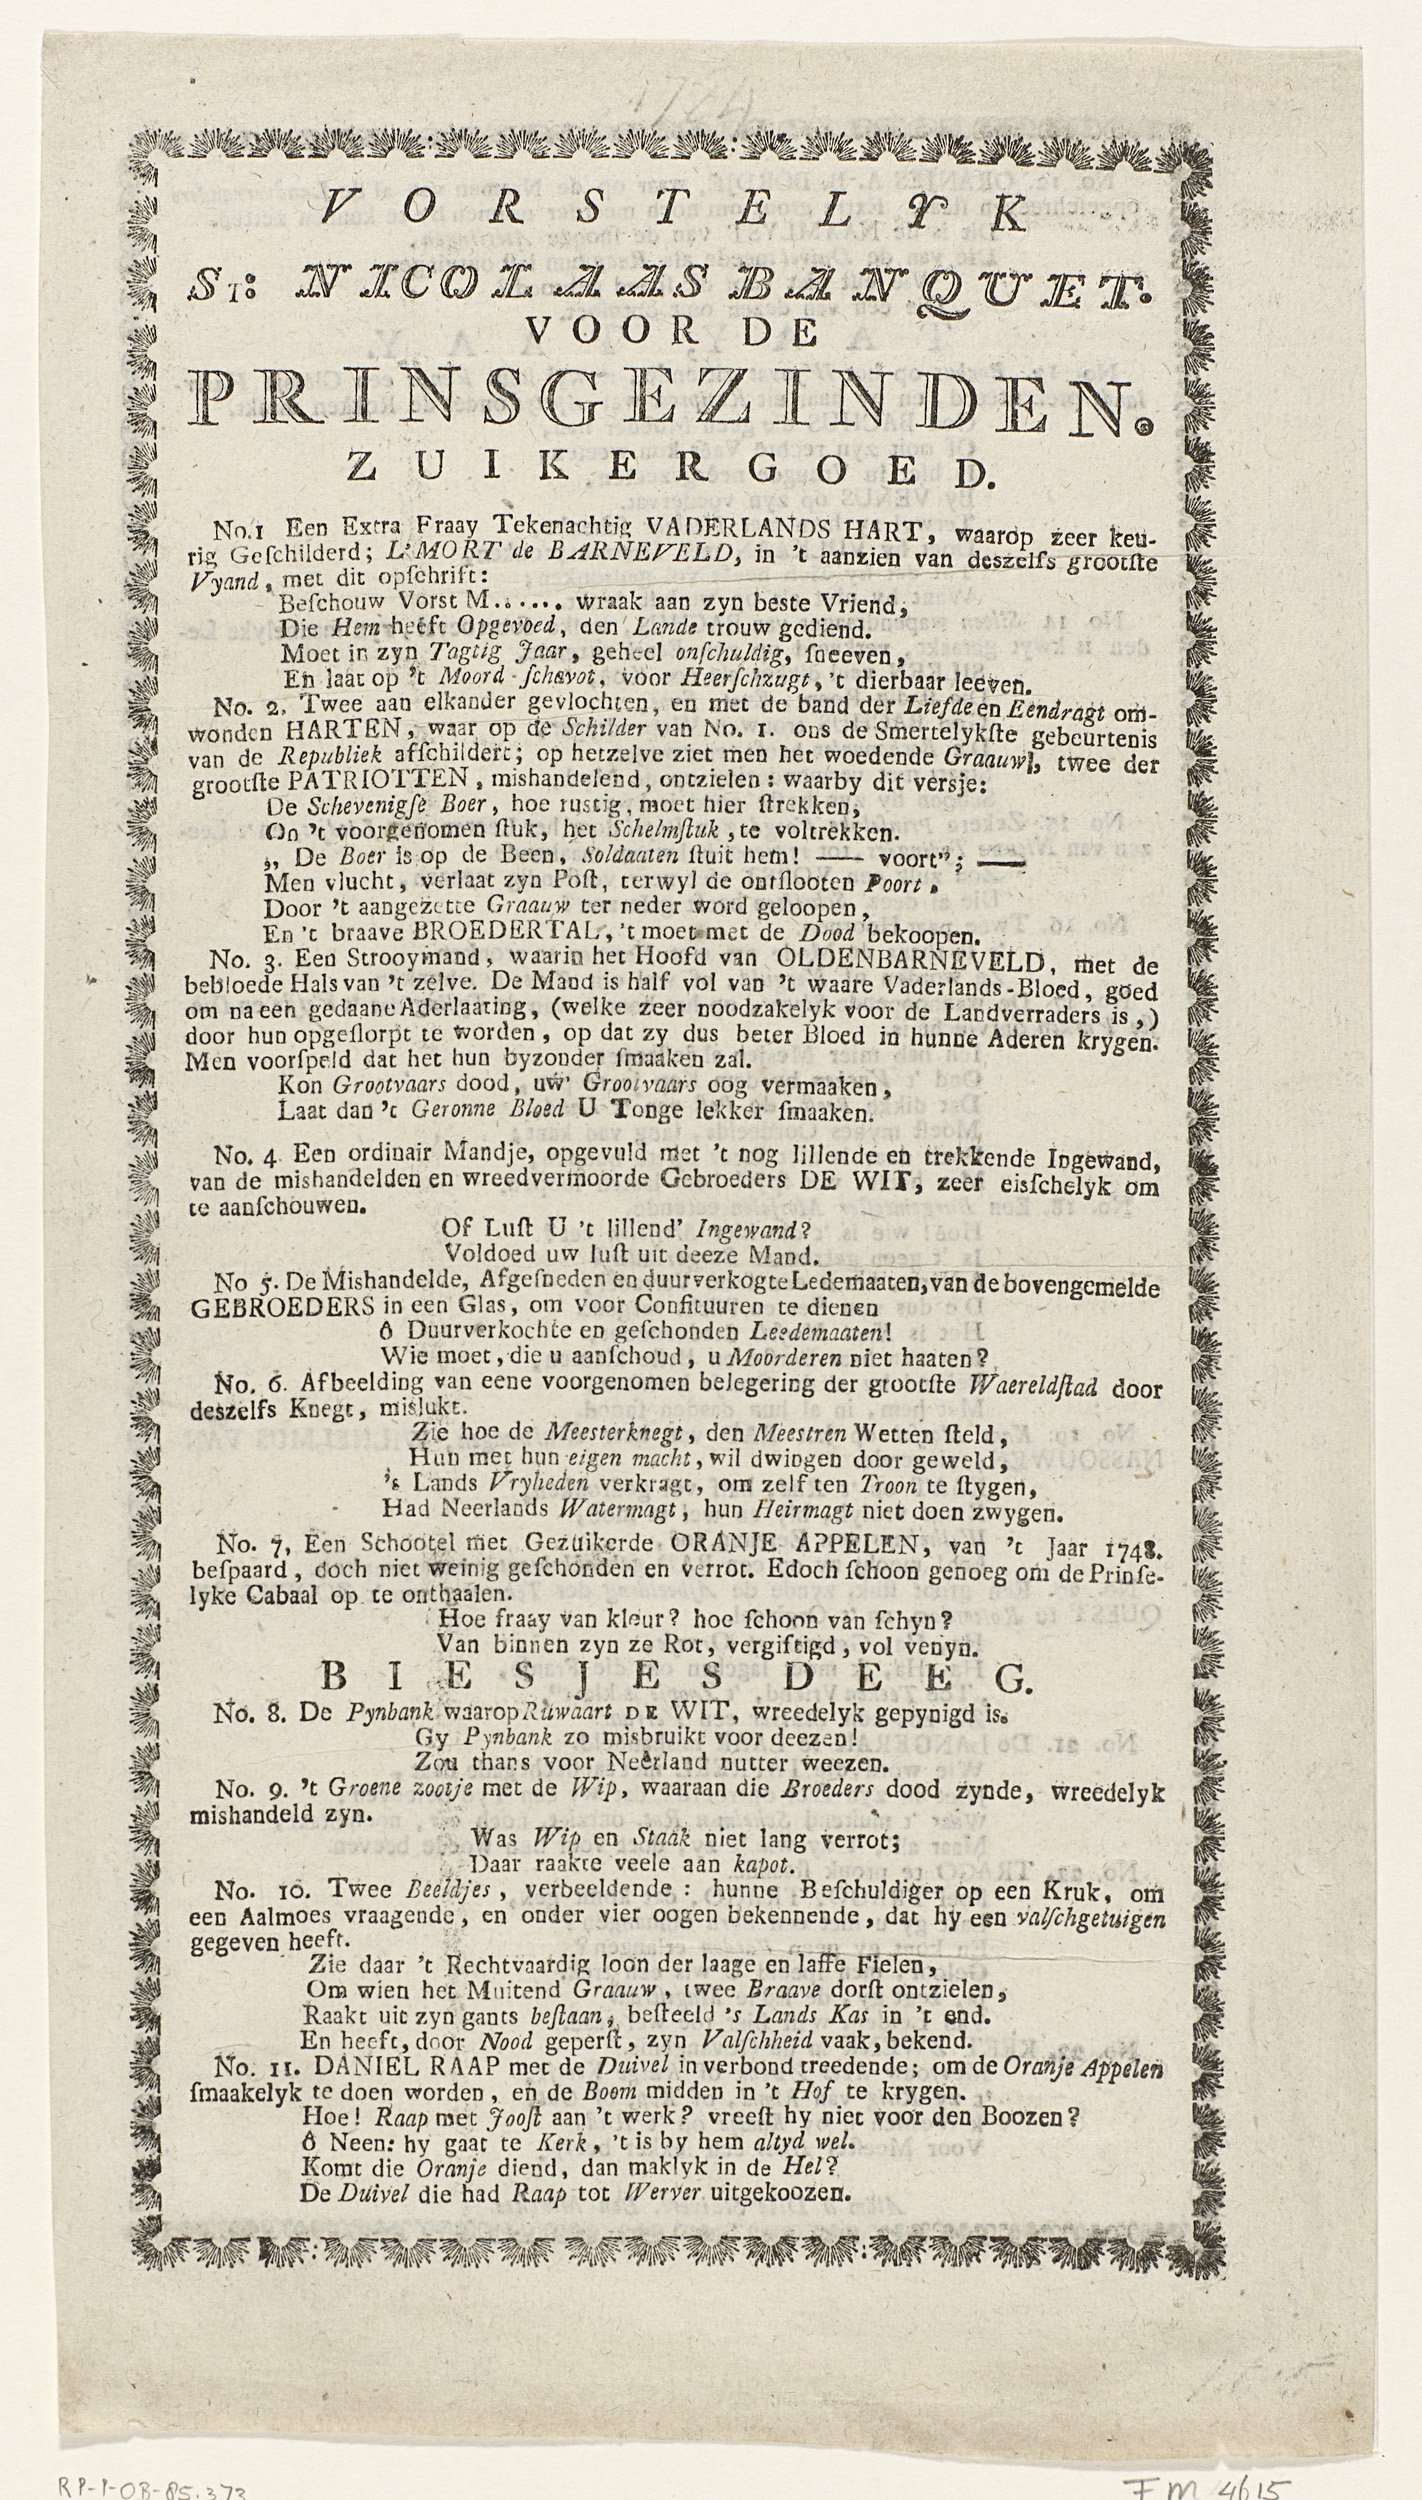 VORSTELYK
ST: NICOLAAS BANQUET.
VOOR DE
PRINSGEZINDEN.
ZUIKERGOED.
No.1 Een Extra Fraay Tekenachtig VADERLANDS HART, waarop zeer keu-
rig Geſchilderd; L'MORT de BARNEVELD, in 't aanzien van deszelfs grootſte
Vyand, met dit opſchrift:
Beſchouw Vorst M...... wraak aan zyn beste Vriend,
Die Hem heeft Opgevoed, den Lande trouw gediend.
Moet in zyn Tagtig Jaar, geheel onſchuldig, ſneeven,
En laat op 't Moord-ſchavot, voor Heerſchzugt, 't dierbaar leeven.
No. 2. Twee aan elkander gevlochten, en met de band der Liefde en Eendragt om-
wonden HARTEN, waar op de Schilder van No. 1. ons de Smertelykſte gebeurtenis
van de Republiek afſchildert; op hetzelve ziet men het woedende Graauw, twee der
grootſte PATRIOTTEN, mishandelend, ontzielen: waarby dit versje:
De Schevenigſe Boer, hoe rustig, moet hier ſtrekken,
Om 't voorgenomen ſtuk, het Schelmſtuk, te voltrekken.
„ De Boer is op de Been, Soldaaten ſtuit hem! —— voort”; ——
Men vlucht, verlaat zyn Poſt, terwyl de ontſlooten Poort,
Door 't aangezette Graauw ter neder word geloopen,
En 't braave BROEDERTAL, 't moet met de Dood bekoopen.
No. 3. Een Strooymand, waarin het Hoofd van OLDENBARNEVELD, met de
bebloede Hals van 't zelve. De Mand is half vol van 't waare Vaderlands-Bloed, goed
om na een gedaane Aderlaating, (welke zeer noodzakelyk voor de Landverraders is,)
door hun opgeſlorpt te worden, op dat zy dus beter Bloed in hunne Aderen krygen.
Men voorſpeld dat het hun byzonder ſmaaken zal.
Kon Grootvaars dood, uw' Grootvaars oog vermaaken,
Laat dan 't Geronne Bloed U Tonge lekker ſmaaken.
No. 4. Een ordinair Mandje, opgevuld met 't nog lillende en trekkende Ingewand,
van de mishandelden en wreedvermoorde Gebroeders DE WIT, zeer eisſchelyk om
te aanſchouwen.
Of Luſt U 't lillend' Ingewand?
Voldoed uw luſt uit deeze Mand.
No 5. De Mishandelde, Afgeſneden en duurverkogte Ledemaaten, van de bovengemelde
GEBROEDERS in een Glas, om voor Confituuren te dienen
ô Duurverkochte en geſchonden Leedemaaten!
Wie moet, die u aanſchoud, u Moorderen niet haaten?
No. 6. Afbeelding van eene voorgenomen belegering der grootſte Waereldſtad door
deszelfs Knegt, mislukt.
Zie hoe de Meesterknegt, den Meestren Wetten ſteld,
Hun met hun eigen macht, wil dwingen door geweld,
's Lands Vryheden verkragt, om zelf ten Troon te ſtygen,
Had Neerlands Watermagt, hun Heirmagt niet doen zwygen.
No. 7, Een Schootel met Gezuikerde ORANJE APPELEN, van 't Jaar 1748.
beſpaard, doch niet weinig geſchonden en verrot. Edoch ſchoon genoeg om de Prinſe-
lyke Cabaal op te onthaalen.
Hoe fraay van kleur? hoe ſchoon van ſchyn?
Van binnen zyn ze Rot, vergiftigd, vol venyn.
BIESJESDEEG.
No. 8. De Pynbank waarop Ruwaart DE WIT, wreedelyk gepynigd is.
Gy Pynbank zo misbruikt voor deezen!
Zou thans voor Neêrland nutter weezen.
No. 9. 't Groene zootje met de Wip, waaraan die Broeders dood zynde, wreedelyk
mishandeld zyn.
Was Wip en Staak niet lang verrot;
Daar raakte veele aan kapot.
No. 10. Twee Beeldjes, verbeeldende: hunne Beſchuldiger op een Kruk, om
een Aalmoes vraagende, en onder vier oogen bekennende, dat hy een valſchgetuigen
gegeven heeft.
Zie daar 't Rechtvaardig loon der laage en laffe Fielen,
Om wien het Muitend Graauw, twee Braave dorſt ontzielen,
Raakt uit zyn gants beſtaan, beſteeld 's Lands Kas in 't end.
En heeft, door Nood geperſt, zyn Valſchheid vaak, bekend.
No. 11. DANIEL RAAP met de Duivel in verbond treedende; om de Oranje Appelen
ſmaakelyk te doen worden, en de Boom midden in 't Hof te krygen.
Hoe! Raap met Jooſt aan 't werk? vreeſt hy niet voor den Boozen?
ô Neen: hy gaat te Kerk, 't is by hem altyd wel.
Komt die Oranje diend, dan maklyk in de Hel?
De Duivel die had Raap tot Werver uitgekoozen.
RP-P-OB-85.373
FM 4615